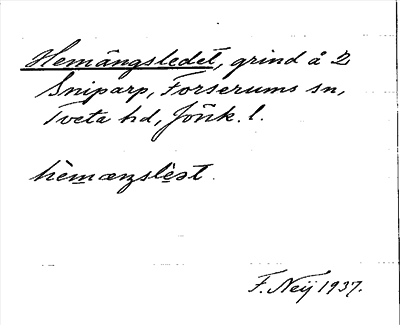 Hemängsledet, grind å 2
Sniparp, Forserums sn,
Tveta hd, Jönk. l.
hèmæŋslèət.
F. Neij 1937.